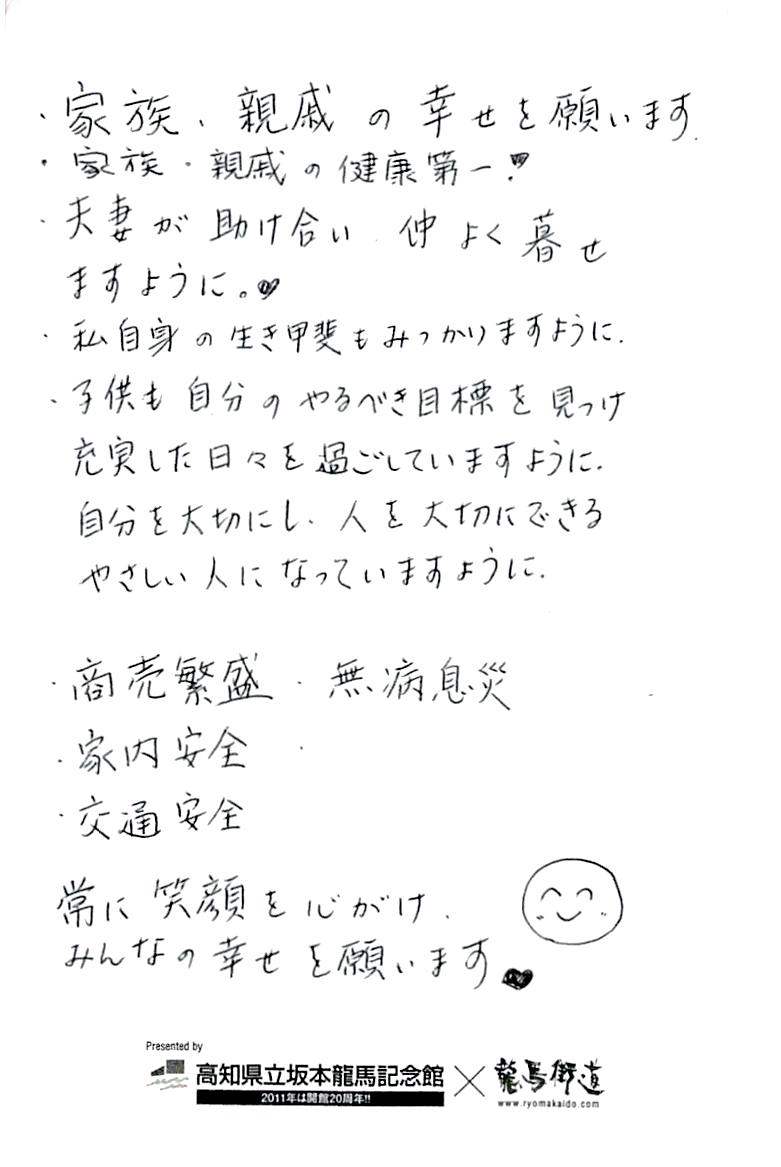 ・家族、親戚の幸せを願います
・家族・親戚の健康第一!♥
・夫妻が助け合い 仲よく暮せ
ますように。♥
・私自身の生き甲斐もみつかりますように.
・子供も自分のやるべき目標を見つけ
充実した日々を過ごしていますように.
自分を大切にし、人を大切にできる
やさしい人になっていますように.
・商売繁盛 ・無病息災
・家内安全 ・
・交通安全
常に笑顔を心がけ、
みんなの幸せを願います♥
Presented by
高知県立坂本龍馬記念館 × 龍馬街道
2011年は開館20周年!! www.ryomakaido.com